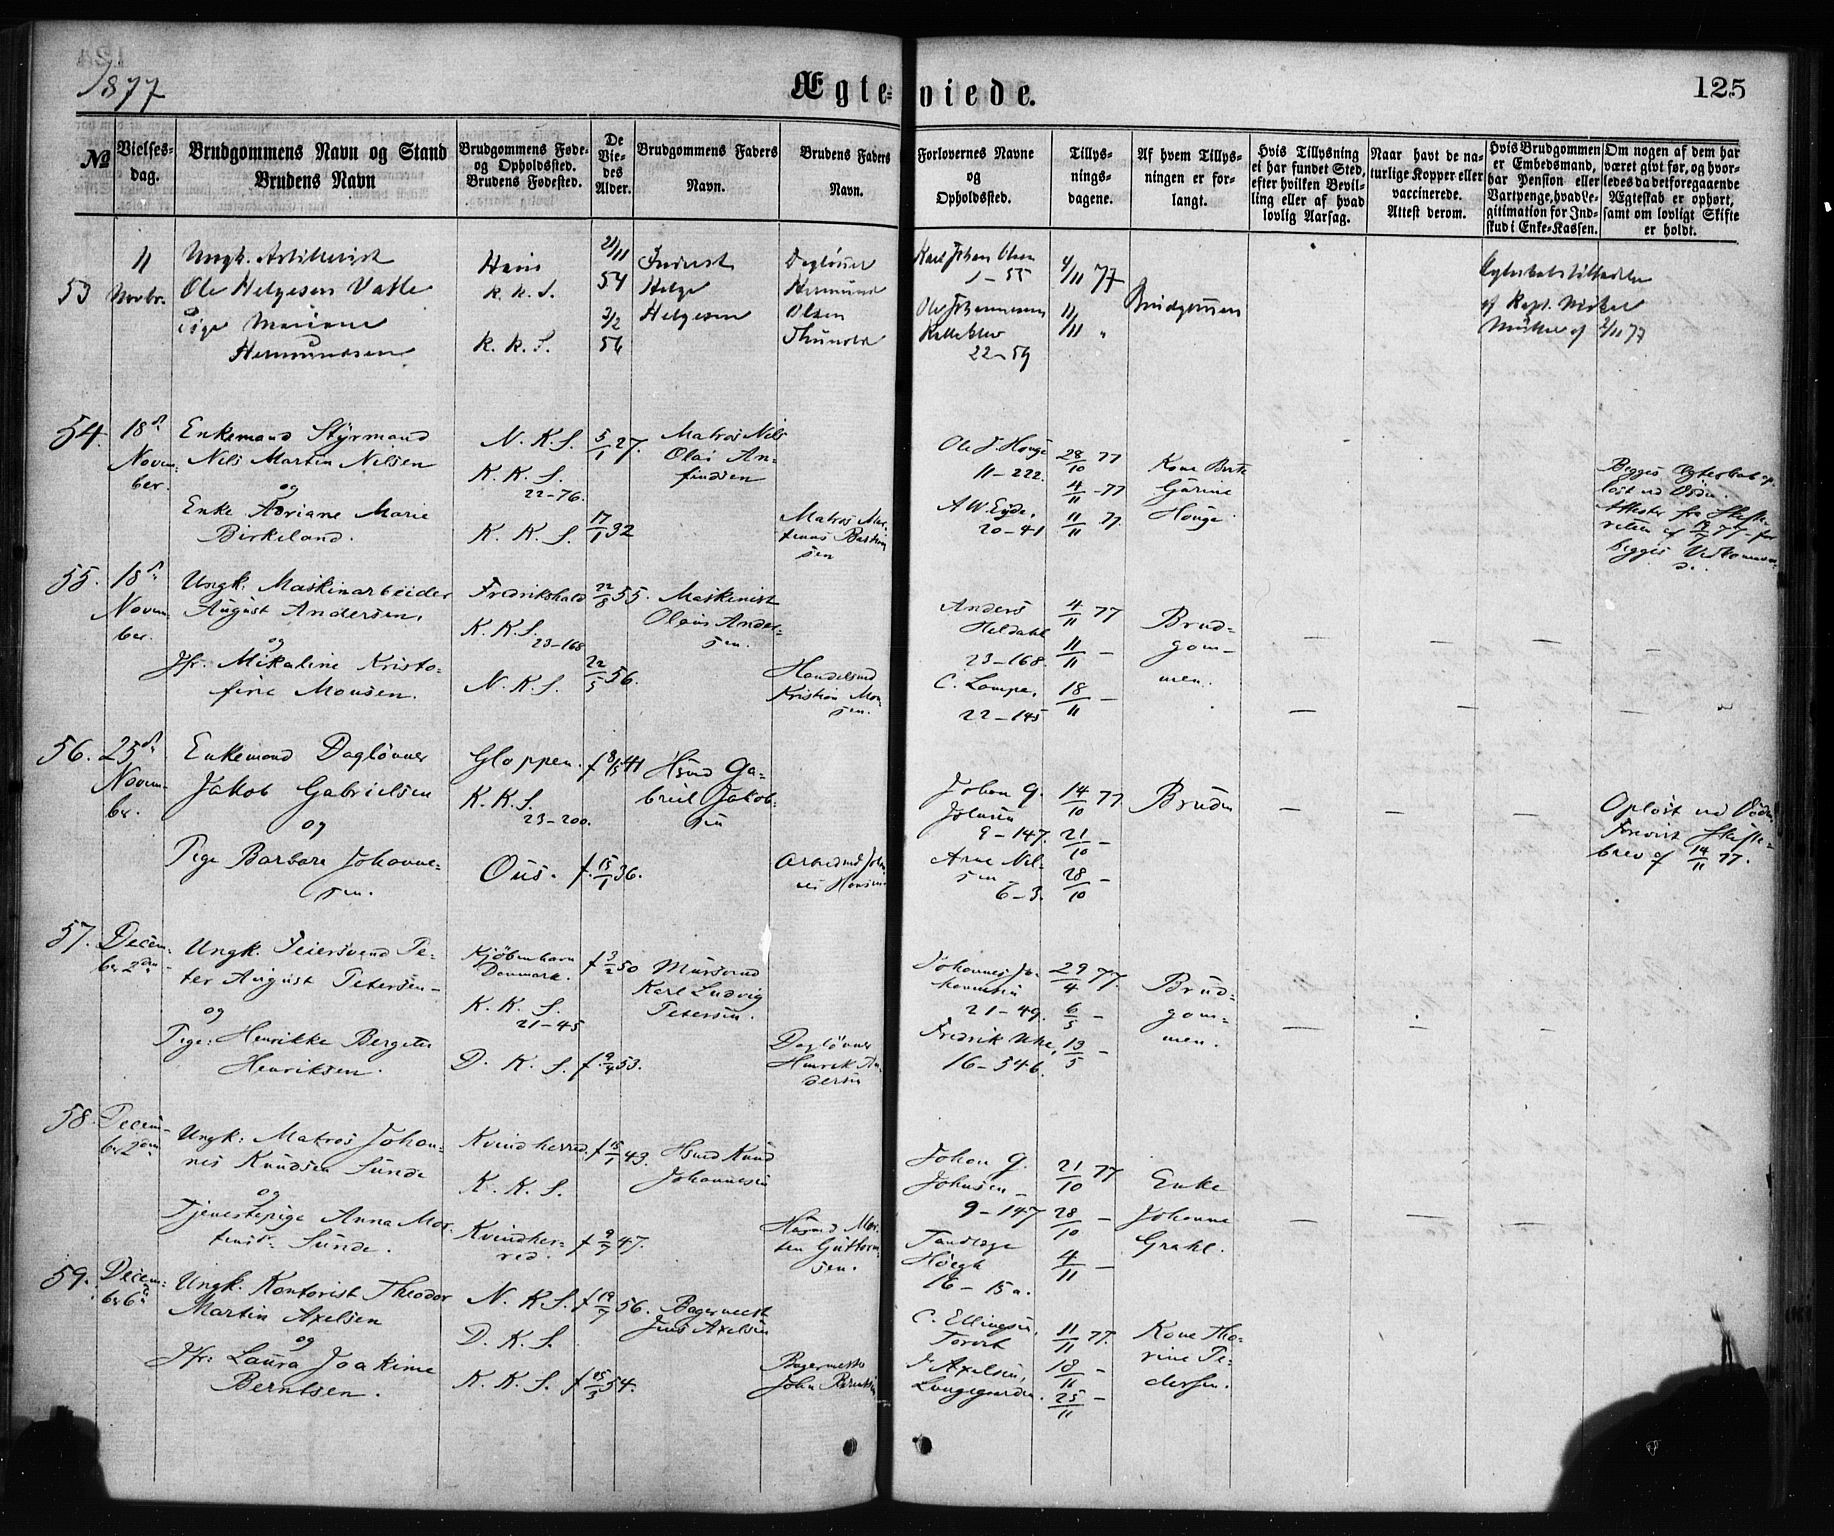 1877
Ægte- viede.
125
№
Vielses-
dag.
Brudgommens Navn og Stand
Brudens Navn
Brudgommens Føde-
og Opholdssted.
Brudens Fødested.
De
Vie-
des
Alder.
Brudgommens Faders
Navn.
Brudens Faders
Navn.
Forlovernes Navne
og
Opholdssted.
Tillys-
nings-
dagene.
Af hvem Tillys-
ningen er for-
langt.
Hvis Tillysning
ei har fundet Sted,
efter hvilken Bevil-
ling eller af hvad
lovlig Aarsag.
Naar havt de na-
turlige Kopper eller
vaccinerede.
Attest derom.
Hvis Brudgommen
er Embedsmand,
har Pension eller
Vartpenge, hvad Le-
gitimation for Ind-
skud i Enke-Kassen.
Om nogen af dem har
været givt før, og hvor-
ledes da det foregaaende
Ægteskab er ophørt,
samt om lovligt Skifte
er holdt.
53
11
Novbr.
Ungk. Artillerist
Ole Helgesen Valle
Pige Mariane
Hermundsen
K. K. S.
K. K. S.
21/11
54
3/2
56
Helge
Helgesen
Dagløner
Hermund
Olsen
Karl Johan Olsen
1-55
Ole Johannesen
22-59
4/11 77
11/11 "
Brudgommen
af Kapt.
2/11 77
54.
18d
Novem-
ber.
Enkemand Styrmand
Nils Martin Nilsen
og
Enke Adriane Marie
Birkeland.
N. K. S.
K. K. S.
22-76.
K. K. S.
5/1 27.
17/1 32
Matros Nils
Olai An-
findsen
Matros Mar-
sen
Ole J. Houge
11-222.
A W. Eyde,
20-41
28/10 77
4/11 - 77
11/11 77.
Kone Berte
Gurine
Houge.
Begges Ægteskab op-
løst ved Døden.
Attester fra Skifte-
retten af
begges Vedkommen-
de.
55.
18d
Novem-
ber.
Ungk. Maskinarbeider
August Andersen,
og
Jfr. Mikaline Kristo-
fine Monsen.
Fredrikshald
K. K. S.
23-168
N. K. S.
22/8 55.
22/5 56.
Maskinist
Olaus Ander-
sen.
Handelsmd
Kristian Mon-
sen.
Anders
Heldahl
23-168.
C. Lampe,
22-145
4/11 77
11/11 -
18/11 -
Brud-
gom-
men.
56.
25d
Novem-
ber.
Enkemand Dagløner
Jakob Gabrielsen
og
Pige Barbara Johanne-
sen.
Gloppen.
K. K. S.
23-200.
Ous.
f 8/5 41
f. 15/1 36.
Hsmd Ga-
briel Jakob-
sen
Arbeidsmd Johan-
nes Hansen
Johan G.
Johnsen
9-147.
Arne Nil-
sen
6-3.
14/10 77
21/10 -
28/10 -
Bruden
Opløst ved Døden
Forevist Skifte-
brev af 14/11 77.
57.
Decem-
ber 2den
Ungk. Feiersvend Pe-
ter August Petersen -
og
Pige: Henrikke Bergete
Henriksen.
Kjøbenhavn
Danmark.
K. K. S.
21-45
D. K. S.
f 3/2 50
f. 9/4 53.
Mursvend
Karl Ludvig
Petersen.
Dagløner
Henrik An-
dersen
Johannes Jo-
hannesen
21-49.
Fredrik Uhe,
16-346.
29/4 77.
6/5 -
13/5 -
Brud-
gom-
men.
58.
Decem-
ber 2den
Ungk: Matros Johan-
nes Knudsen Sunde
og
Tjenestepige Anna Mor-
tensd. Sunde.
Kvindherred.
K. K. S.
Kvindher-
red.
f 15/1 43.
f 9/7 47.
Hsmd Knud
Johannesen
Husmd Mor-
ten Guttorm-
sen.
Johan G.
Johnsen -
9-147
Tandlæge
Høegh
16-15a.
21/10 77
28/10 -
4/11 -
Enke
Johanne
Grahl.
59.
Decem-
ber 6d
Ungk: Kontorist Theodor
Martin Axelsen
og
Jfr: Laura Joakime
Berntsen.
N. K. S.
D. K. S.
K. K. S.
f 19/7 56.
f 15/3 54.
Bagermester
Jens Axelsen
Bagermester
John Berntsen
C. Ellingsen,
Torvet
J. Axelsen,
Lungegaarden.
11/11 77.
18/11 -
25/11 -
Kone Tho-
rine Pe-
dersen.